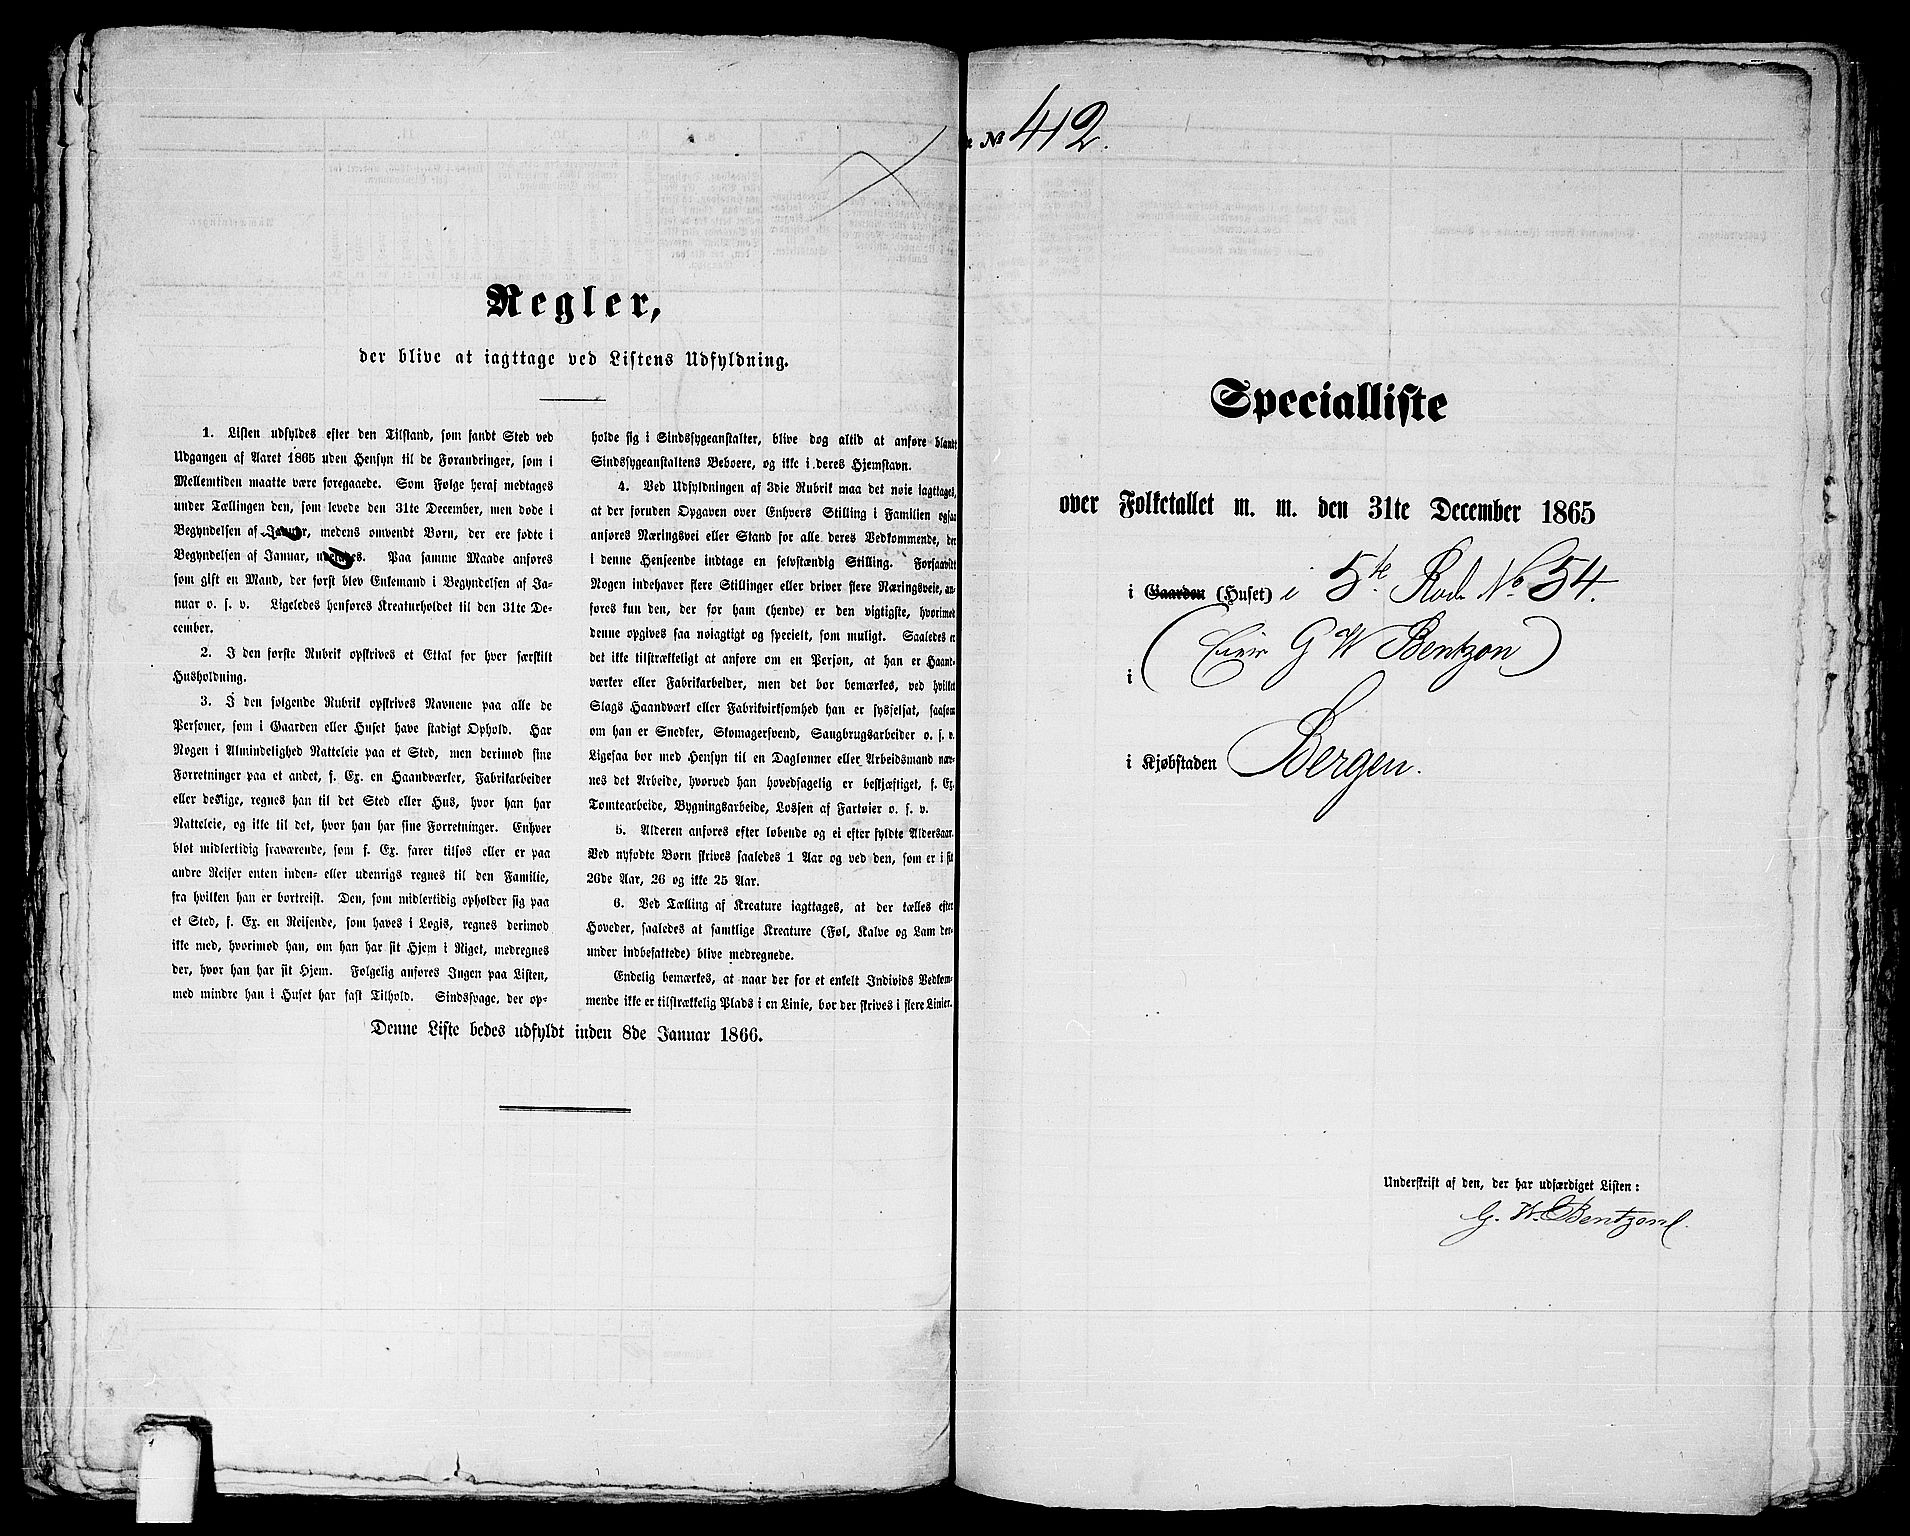 Regler,
der blive at iagttage ved Listens Udfyldning.
1. Listen udfyldes efter den Tilstand, som fandt Sted ved
Udgangen af Aaret 1865 uden Hensyn til de Forandringer, som i
Mellemtiden maatte være foregaaede. Som Følge heraf medtages
under Tællingen den, som levede den 31te December, men døde i
Begyndelsen af Januar, medens omvendt Børn, der ere fødte i
Begyndelsen af Januar, udelades. Paa samme Maade anføres
som gift en Mand, der først blev Enkemand i Begyndelsen af Ja-
nuar o. s. v. Ligeledes henføres Kreaturholdet til den 31te De-
cember.
2. I den første Rubrik opskrives et Ettal for hver særskilt
Husholdning.
3. I den følgende Rubrik opskrives Navnene paa alle de
Personer, som i Gaarden eller Huset have stadigt Ophold. Har
Nogen i Almindelighed Natteleie paa et Sted, men derimod sine
Forretninger paa et andet, f. Ex. en Haandværker, Fabrikarbeider
eller deslige, regnes han til det Sted eller Hus, hvor han har
Natteleie, og ikke til det, hvor han har sine Forretninger. Enhver
blot midlertidig fraværende, som f. Ex. farer tilsøs eller er paa
andre Reiser enten inden- eller udenrigs regnes til den Familie,
fra hvilken han er bortreist. Den, som midlertidig opholder sig paa
et Sted, f. Ex. en Reisende, som haves i Logis, regnes derimod
ikke med, hvorimod han, om han har sit Hjem i Riget, medregnes
der, hvor han har sit Hjem. Følgelig anføres Ingen paa Listen,
med mindre han i Huset har fast Tilhold. Sindssvage, der op-
holde sig i Sindssygeanstalter, blive dog altid at anføre blandt
Sindssygeanstaltens Beboere, og ikke i deres Hjemstavn.
4. Ved Udfyldningen af 3die Rubrik maa det nøie iagttages,
at der foruden Opgaven over Enhvers Stilling i Familien ogsaa
anføres Næringsvei eller Stand for alle deres Vedkommende, der
i denne Henseende indtage en selvstændig Stilling. Forsaavidt
Nogen indehaver flere Stillinger eller driver flere Næringsveie, an-
føres kun den, der for ham (hende) er den vigtigste, hvorimod
denne opgives saa nøiagtigt og specielt, som muligt. Saaledes er
det ikke tilstrækkeligt at anføre om en Person, at han er Haand-
værker eller Fabrikarbeider, men det bør bemærkes, ved hvilket
Slags Haandværk eller Fabrikvirksomhed han er sysselsat, saasom
om han er Snedker, Skomagersvend, Saugbrugsarbeider o. s. v.
Ligesaa bør med Hensyn til en Daglønner eller Arbeidsmand næv-
nes det Arbeide, hvorved han hovedsagelig er beskjæftiget, f. Ex.
Tomtearbeide, Bygningsarbeide, Lossen af Fartøier o. s. v.
5. Alderen anføres efter løbende og ei efter fyldte Aldersaar.
Ved nyfødte Børn skrives saaledes 1 Aar og ved den, som er i sit
26de Aar, 26 og ikke 25 Aar.
6. Ved Tælling af Kreature iagttages, at der tælles efter
Hoveder, saaledes at samtlige Kreature (Føl, Kalve og Lam der-
under indbefattede) blive medregnede.
Endelig bemærkes, at naar der for et enkelt Individs Vedkom-
mende ikke er tilstrækkelig Plads i en Linie, bør der skrives i flere Linier.
Denne Liste bedes udfyldt inden 8de Januar 1866.
№ 412.
Specialliste
over Folketallet m. m. den 31te December 1865
i Gaarden (Huset) i 5te Rode No 54.
i (Eier G W Bentzon)
i Kjøbstaden Bergen.
Underskrift af den, der har udfærdiget Listen:
G. W. Bentzon